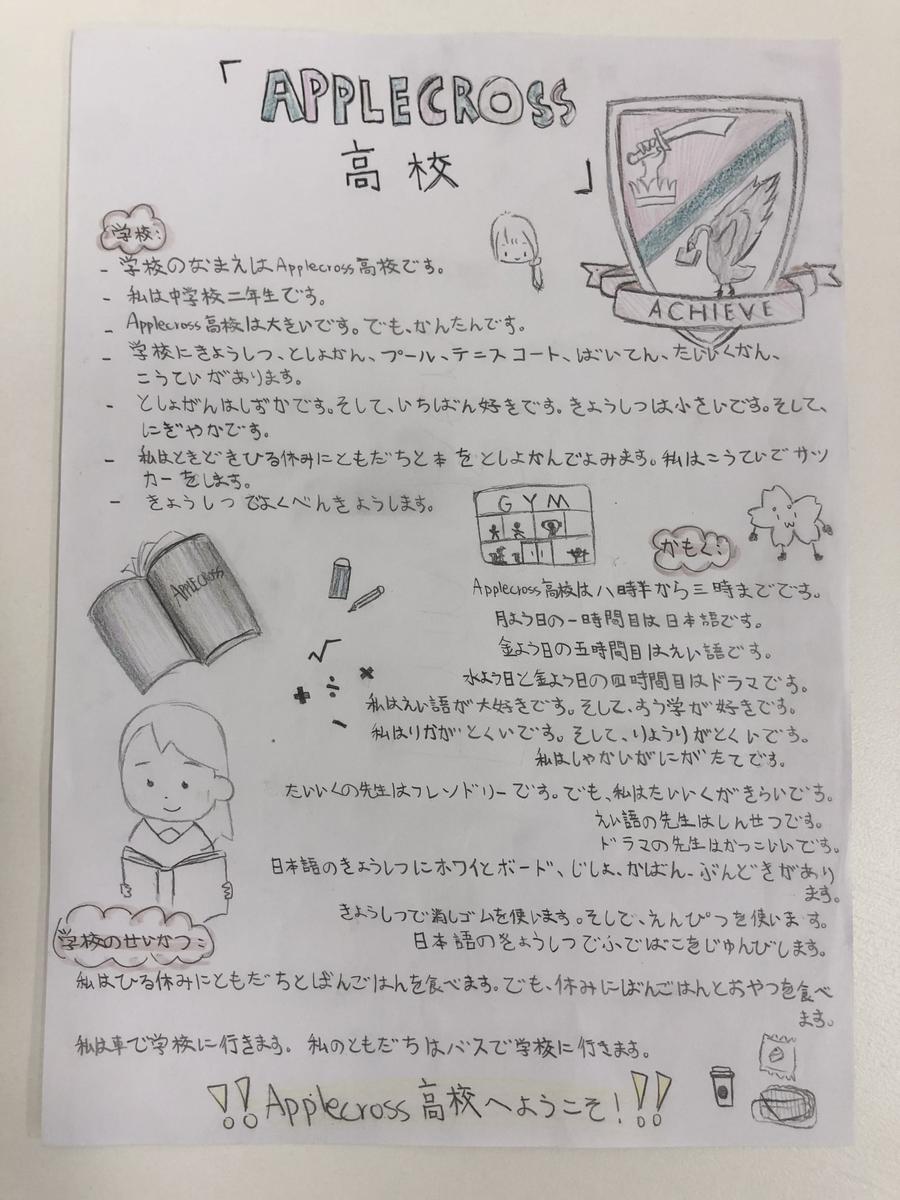 「APPLECROSS
高校」
ACHIEVE
学校:
- 学校のなまえはApplecross高校です。
- 私は中学校二年生です。
- Applecross高校は大きいです。でも、かんたんです。
- 学校にきょうしつ、としょかん、プール、テニスコート、ばいてん、たいいくかん、
こうていがあります。
- としょがんはしずかです。そして、いちばん好きです。きょうしつは小さいです。そして、
にぎやかです。
- 私はときどきひる休みにともだちと本をとしよかんでよみます。私はこうていでサッ
カーをします。
- きょうしつでよくべんきょうします。
GYM
かもく:
APPLECROSS
Applecross高校は八時半から三時までです。
月よう日の一時間目は日本語です。
金よう日の五時間目はえい語です。
水よう日と金よう日の四時間目はドラマです。
私はえい語が大好きです。そして、すう学が好きです。
私はりかがとくいです。そして、りょうりがとくいです。
私はしゃかいがにがたてです。
√ × + ÷ -
たいいくの先生はフレンドリーです。でも、私はたいいくがきらいです。
えい語の先生はしんせつです。
ドラマの先生はかっこいいです。
日本語のきょうしつにホワイとボード、じしょ、かばん、ぶんどきがあり
ます。
きょうしつで消しゴムを使います。そして、えんぴつを使います。
日本語のきょうしつでふでばこをじゅんびします。
学校のせいかつ:
私はひる休みにともだちとばんごはんを食べます。でも、休みにばんごはんとおやつを食べ
ます。
私は車で学校に行きます。私のともだちはバスで学校に行きます。
!!Applecross高校へようこそ!!!